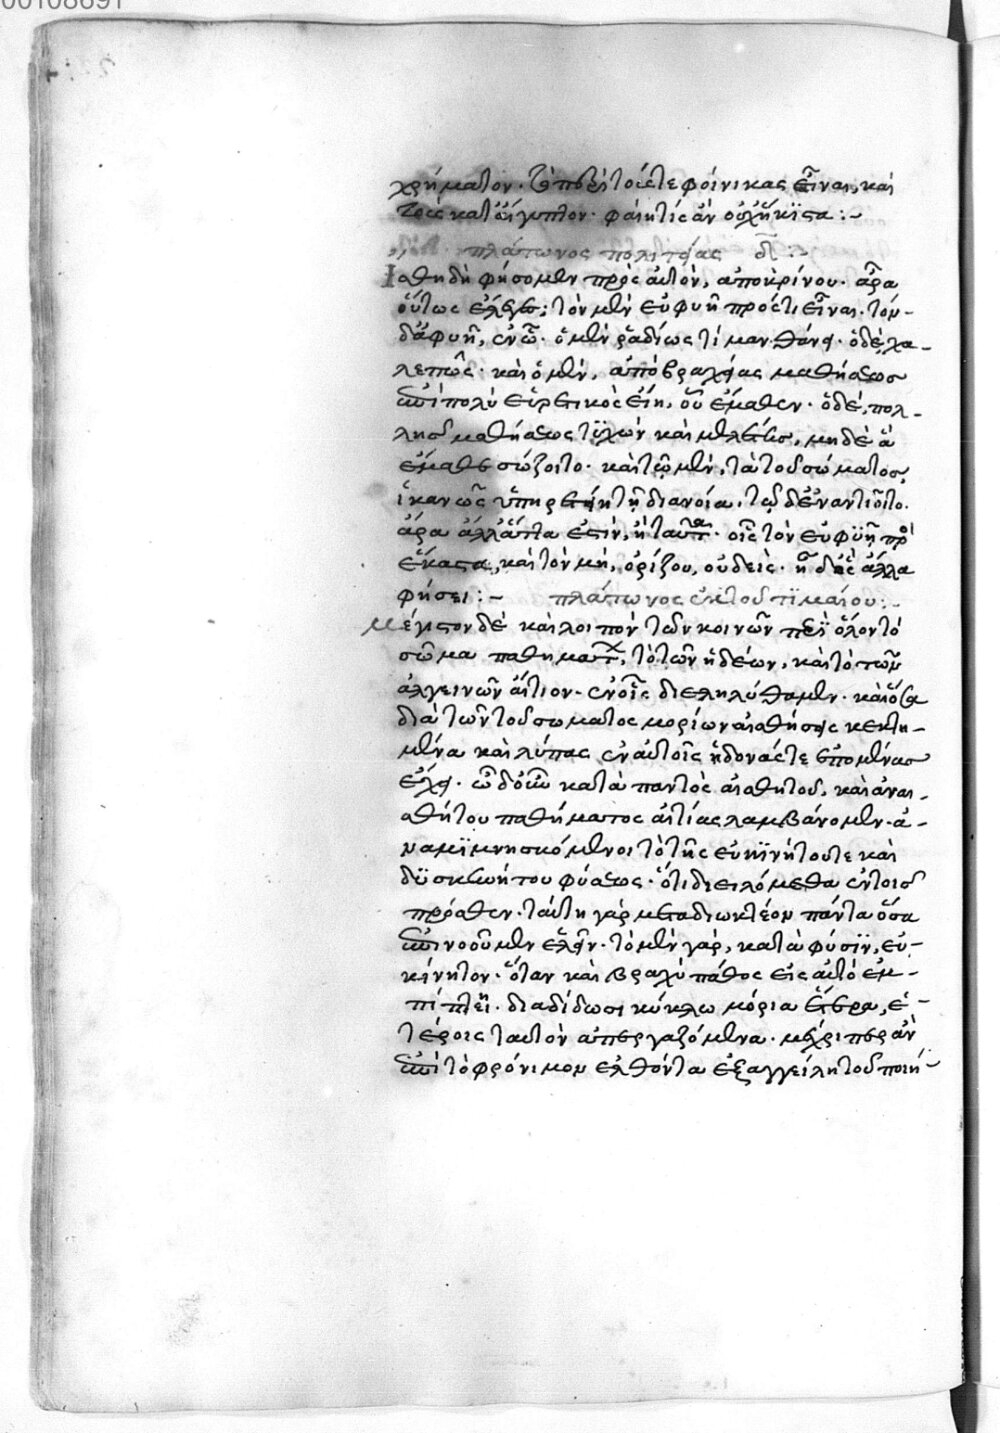 00108691
χρήματον. ὃ περὶ τοὺς τε φοίνικας εἶναι, καὶ
τοὺς κατ' αἴγυπτον. φαίη τίς ἂν οὐχ ἥκϊστα :-
πλάτωνος πολιτείας
Ἴθι δὴ φήσομεν πρὸς αὐτὸν, ἀποκρίνου. ἆρα
οὕτως ἔλεγες; τὸν μὲν εὐφυῆ πρός τι εἶναι. τὸν
δ' ἀφυῆ, ἐν ᾧ. ὁ μὲν ῥαδίως τί μανθάνει. ὁ δὲ χα-
λεπῶς. καὶ ὁ μὲν, ἀπὸ βραχείας μαθήσεως
ἐπὶ πολὺ εὑρετικὸς εἴη, οὗ ἔμαθεν. ὁ δὲ, πολ-
λῆς μαθήσεως τϋχὼν καὶ μελέτης, μηδὲ ἃ
ἔμαθε σώζοιτο. καὶ τῷ μὲν, τὰ τοῦ σώματος,
ἱκανῶς ὑπηρετείη τῇ διανοίᾳ. τῷ δὲ ἐναντιοῖτο.
ἆρα ἄλλ' ἄττα ἐστὶν, ἢ ταῦτα. οἷς τὸν εὐφϋῆ πρὸς
ἕκαστα, καὶ τὸν μὴ, ὁρίζου, οὐδεὶς. ἦ δ' ὃς ἄλλα
φήσει :- πλάτωνος ἐκ τοῦ τϊμαίου :-
Μέγιστον δὲ καὶ λοιπὸν τῶν κοινῶν περὶ ὅλον τὸ
σῶμα παθημάτων, τὸ τῶν ἡδέων, καὶ τὸ τῶν
ἀλγεινῶν αἴτιον. ἐν οἷς διεληλύθαμεν. καὶ ὅσα
διὰ τῶν τοῦ σώματος μορίων αἰσθήσεις κεκτη-
μένα καὶ λύπας ἐν αὐτοῖς ἡδονάς τε ἑπομένας
ἔχει. ὧδ' οὖν κατὰ παντὸς αἰσθητοῦ, καὶ ἀναι-
σθήτου παθήματος αἰτίας λαμβάνομεν. ἀ-
ναμϊμνησκόμενοι τὸ τῆς εὐκϊνήτου τε καὶ
δϋσκινήτου φύσεως. ὅτι διειλόμεθα ἐν τοῖς
πρόσθεν. ταύτη γὰρ μεταδιωκτέον πάντα ὅσα
ἐπινοοῦμεν ἑλεῖν. τὸ μὲν γὰρ, κατὰ φύσϊν, εὐ-
κίνητον. ὅταν καὶ βραχὺ πάθος εἰς αὐτὸ ἐμ-
πίπτει. διαδίδωσι κύκλω μόρια ἕτερα, ἑ-
τέροις ταυτὸν ἀπεργαζόμενα. μέχρι περ ἂν
ἐπὶ τὸ φρόνιμον ἐλθόντα ἐξαγγείλη τοῦ ποιή-